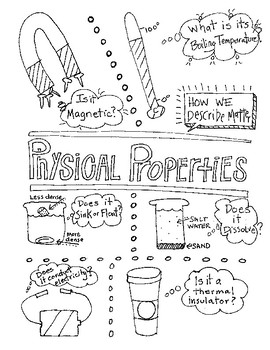 100°
What is its
Boiling Temperature?
Is it
Magnetic?
How we
Describe Matter
Physical Properties
Less dense
Does it
Sink or Float?
more
dense
SALT
WATER
SAND
Does
it
Dissolve?
Does
it conduct
electricity?
Is it a
thermal
insulator?